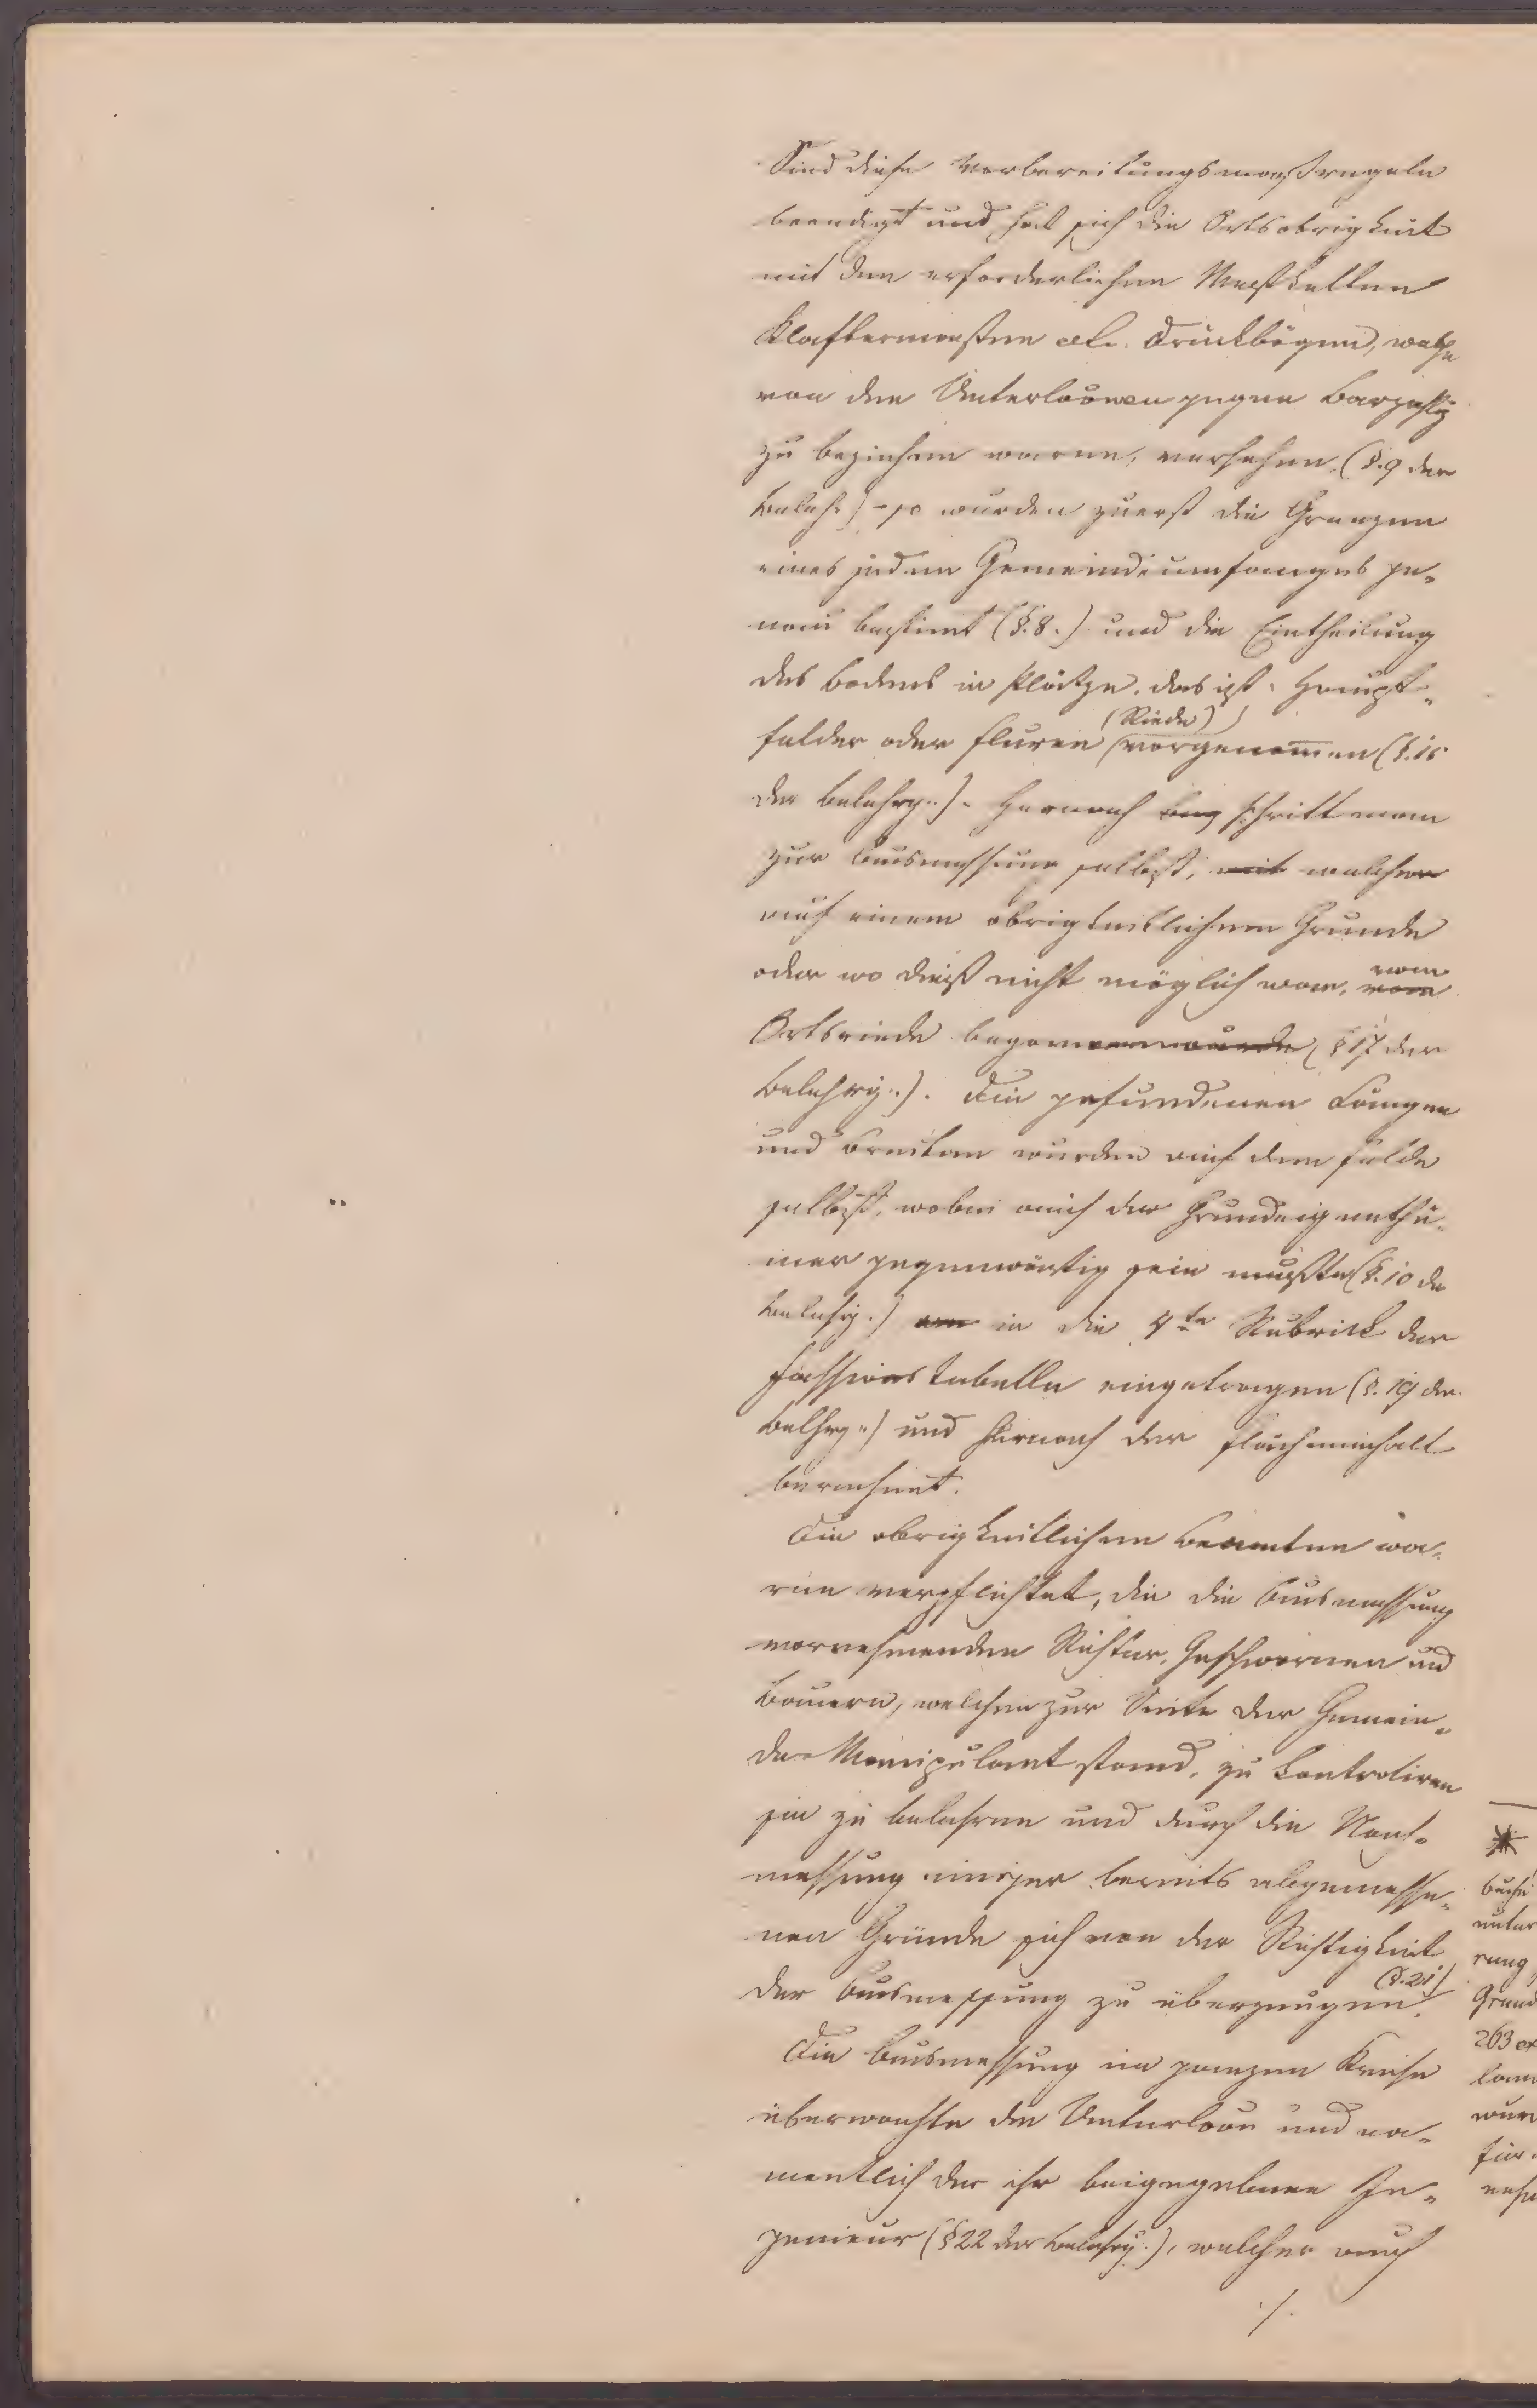 Sind diese Vorbereitungsmaßregeln
beendigt und hat sich die Ortsobrigkeit
mit den erforderlichen Meßketten
Klaftermaßen etc. Druckbögen, welche
von den Unterlaönen gegen Barzahlg
zu beziehen waren, versehen, (§. 9 der
Belehr.) - so wurden zuerst die Grenzen
eines jeden Gemeindeumfanges ge-
nau bestimt (§. 8.) und die Eintheilung
des Bodens in Plätze, das ist: Haupt-
felder oder Fluren (vorgenom̅en (§. 15
(Riede))
der Belehrg..). Hernach schritt man
zur Ausmessung selbst, mit welcher
auf einem obrigkeitlichen Grunde
oder wo dieß nicht möglich war, vom
Ortsriede begonnen wurde (§ 17 der
Belehrg..). Die gefundenen Längen
und Breiten wurden auf dem Felde
selbst, wobei auch der Grundeigenthü-
mer gegenwärtig sein mußte (§. 10 der
Belehrg.) in die 4te Rubrick der
Fassionstabelle eingetragen (§. 19 der
Belhrg..) und hernach der Flächeninhalt
berechnet.
Die obrigkeitlichen Beamten wa-
ren verpflichtet, die die Ausmessung
vornehmenden Richter, Geschwornen und
Bauern, welchen zur Seite der Gemein-
de-Manipulant stand, zu kontroliren
sie zu belehren und durch die Nach-
messung einiger bereits abgemesse-
nen Gründe sich von der Richtigkeit
der Ausmessung zu überzeugen. (§. 21)
Die Ausmessung im ganzen Kreise
überwachte die Unterlaön und na-
mentlich der ihr beigegebene In-
genieur (§ 22 der Belehrg.), welcher auch
./.
263